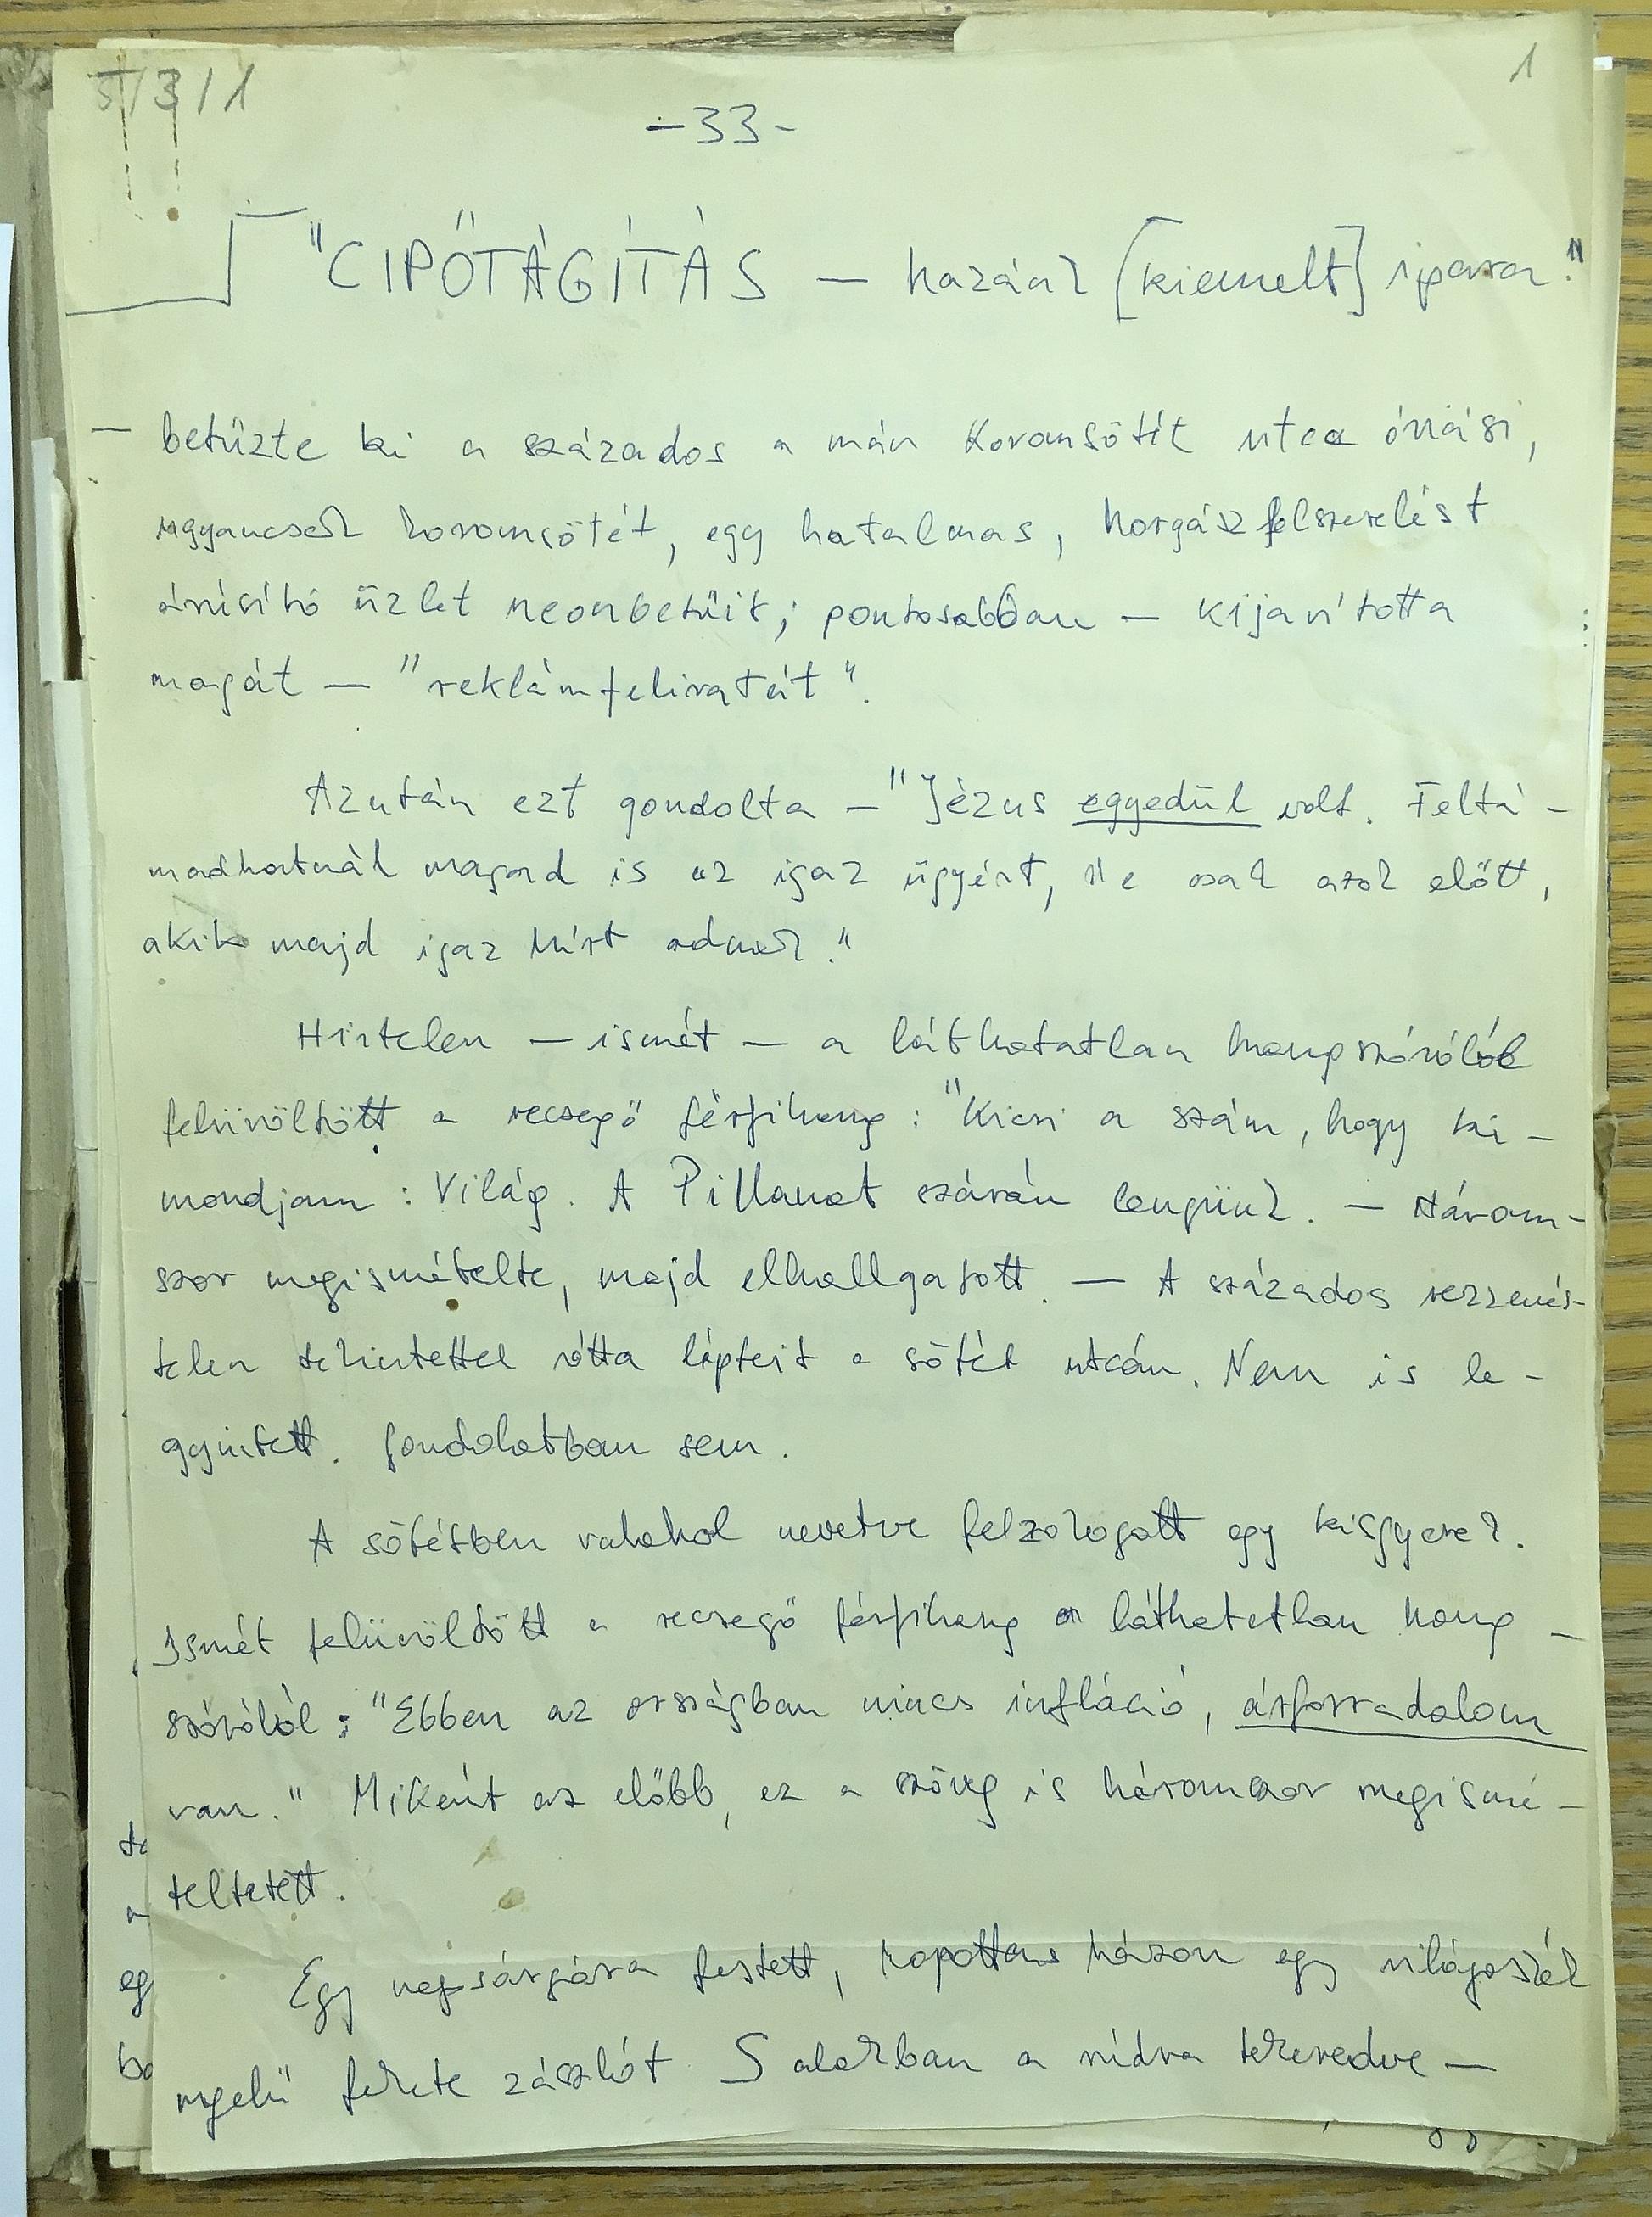 5/3/1
1
-33-
"CIPŐTÁGÍTÁS — hazánk [kiemelt] ipara."
— betűzte ki a százados a már koromsötét utca óriási,
ugyancsak koromsötét, egy hatalmas, horgászfelszerelést
árúsító üzlet neonbetűit; pontosabban — kijavította
magát — "reklámfeliratát".
Azután ezt gondolta — "Jézus egyedül volt. Feltá-
madhatnál magad is az igaz ügyért, de csak azok előtt,
akik majd igaz hírt adnak."
Hirtelen — ismét — a láthatatlan hangszóróból
felüvöltött a recsegő férfihang: "Kicsi a szám, hogy ki-
mondjam: Világ. A Pillanat szárán lengünk. — Három-
szor megismételte, majd elhallgatott. — A százados rezzenés-
telen tekintettel rótta lépteit a sötét utcán. Nem is le-
gyintett. Gondolatban sem.
A sötétben valahol nevetve felzokogott egy kisgyerek.
Ismét felüvöltött a recsegő férfihang a láthatatlan hang-
szóróból: "Ebben az országban nincs infláció, árforradalom
van." Miként az előbb, ez a szöveg is háromszor megismé-
teltetett.
Egy napsárgára festett, roppottans házon egy világoskék
nyelű fekete zászlót. S alakban a rúdra tekeredve —